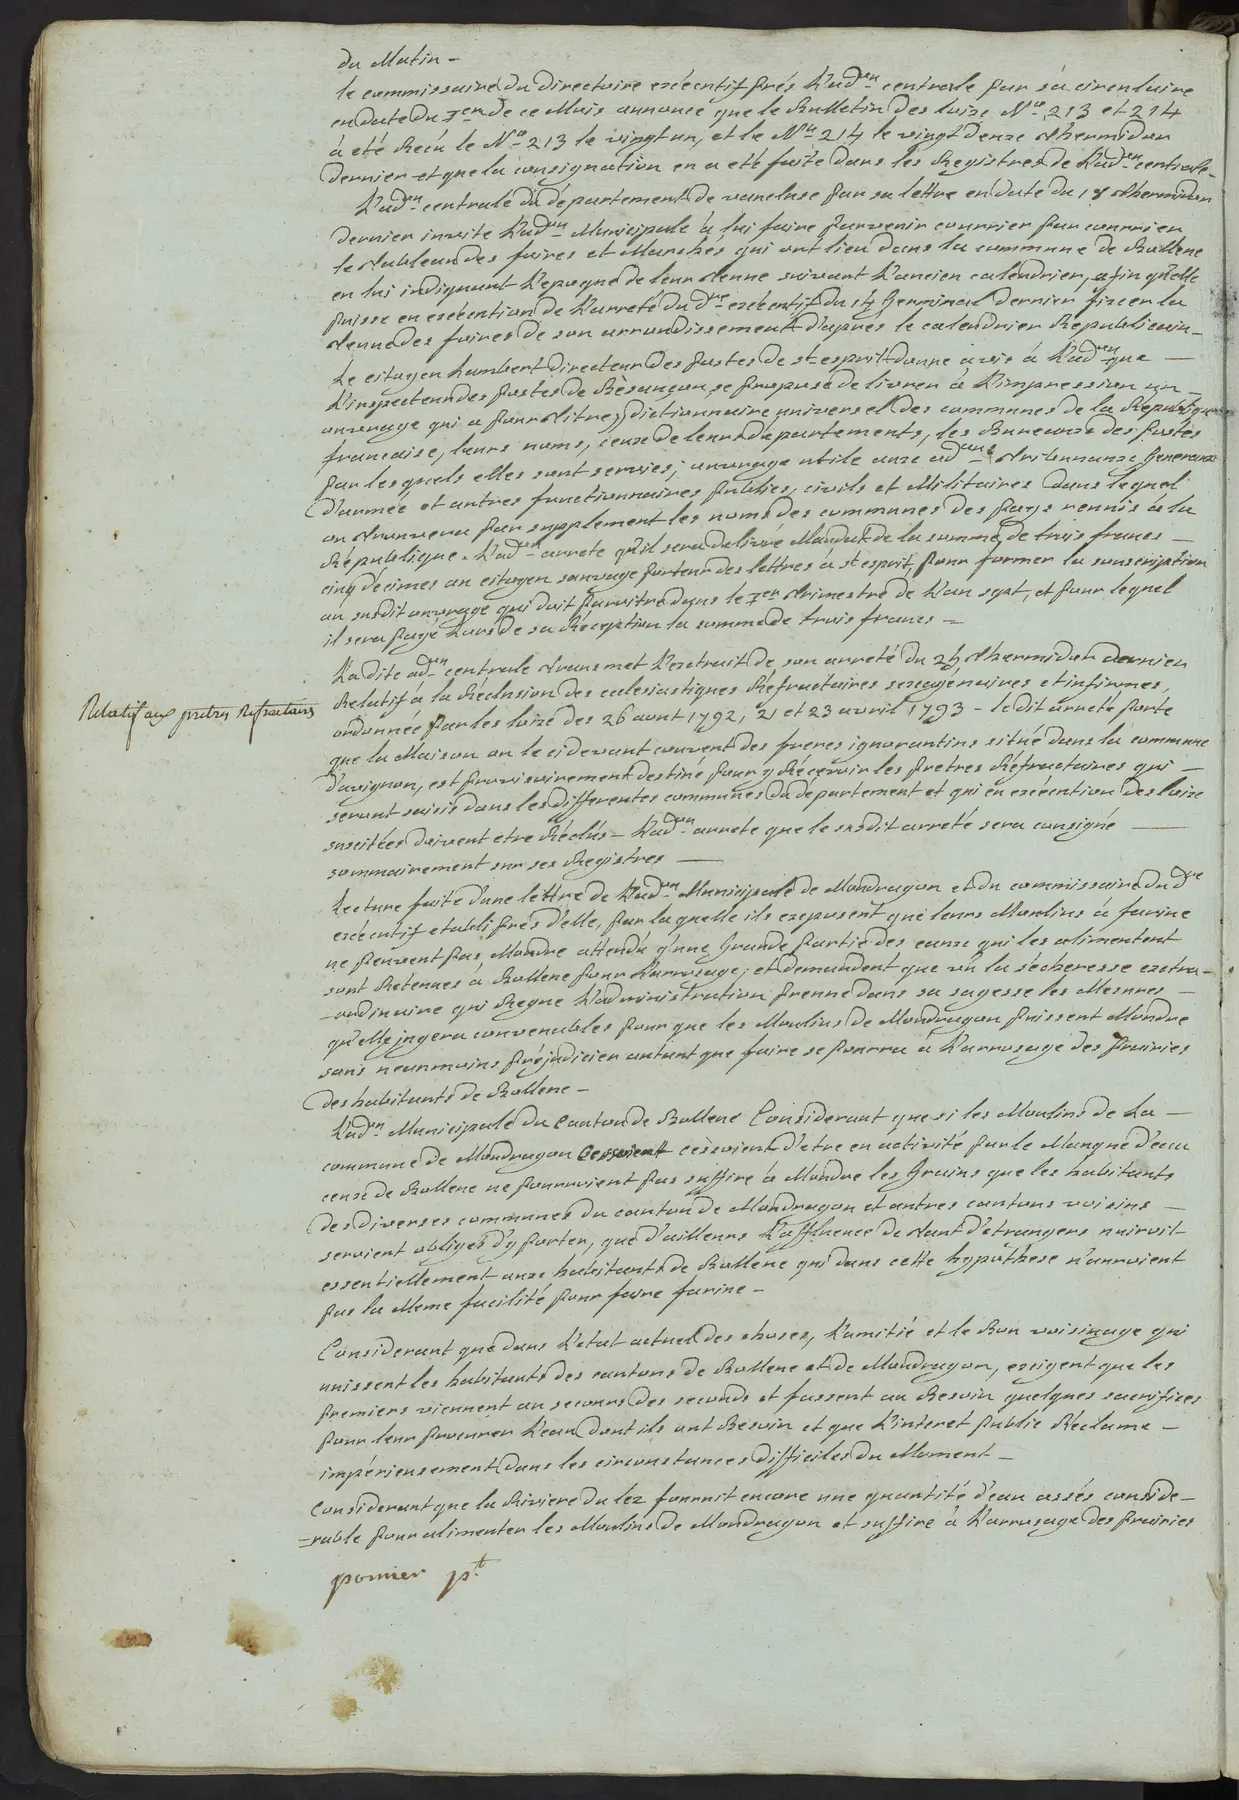 du Matin -
le commissaire du directoire exécutif près L'ad.on centrale par sa circulaire
en date du 1er de ce Mois annonce que le Bulletin des loix N.o 213 et 214
à été Reçu le N.o 213 le vingt un, et le N.o 214 le vingt deux thermidor
dernier et que la consignation en a été faite dans les Registres de L'ad.on centrale -
L'ad.on centrale du département de vaucluse par sa lettre en date du 18 thermidor
dernier invite L'ad.on Municipale à lui faire parvenir courrier par courrier
le tableau des foires et Marchés qui ont lieu dans la commune de Bollene
en lui indiquant L'epoque de leur tenue suivant L'ancien calendrier, afin qu'elle
puisse en exécution de L'arreté du d.re exécutif du 14 Germinal dernier fixer la
tenue des foires de son arrondissement d'après le calendrier Republicain -
Le citoyen Lambert directeur des postes de st esprit donne avis à L'ad.on que
L'inspecteur des postes de Bèsançon se propose de livrer à L'impression un
ouvrage qui a pour titre; dictionnaire universel des communes de la République
francaise, leurs noms, ceux de leurs départements, les Bureaux des postes
par les quels elles sont servies; ouvrage utile aux ad.ons tribunaux Generaux
D'armée et autres fonctionnaires publics, civils et Militaires dans lequel
on trouvera par supplement les noms des communes des pays reunis à la
République. L'ad.on arrete qu'il sera delivré Mandat de la somme de trois francs
cinq décimes au citoyen sauvage porteur des lettres à st esprit, pour former la souscription
au susdit ouvrage qui doit paroitre dans le 1er trimestre de L'an sept, et pour lequel
il sera payé Lors de sa Réception la somme de trois francs =
La dite ad.on centrale transmet L'extrait de son arreté du 24 thermidor dernier
Relatif aux pretres Refractaires
Relatif à la Réclusion des ecclesiastiques Réfractaires sexagénaires et infirmes,
ordonnée par les loix des 26 aout 1792, 21 et 23 avril 1793 - le dit arreté porte
que la Maison ou le ci devant couvent des freres ignorantins situé dans la commune
d'avignon, est provisoirement destiné pour y Récevoir les pretres Réfractaires qui
seront saisis dans les differentes communes du département et qui en exécution des loix
suscitées doivent etre Réclus - L'ad.on arrete que le susdit arreté sera consigné
sommairement sur ses Registres
Lecture faite d'une lettre de L'ad.on Municipale de Mondragon et du commissaire du d.re
exécutif etabli près d'elle, par laquelle ils exposent que leurs Moulins à farine
ne peuvent pas Moudre attendu qu'une Grande partie des eaux qui les alimentent
sont Retenues à Bollene pour L'arrosage; et demandent que vû la sécheresse extra-
-ordinaire qui Regne L'administration prenne dans sa sagesse les Mesures
qu'elle jugera convenables pour que les Moulins de Mondragon puissent Moudre
sans neanmoins préjudicier autant que faire se pourra à L'arrosage des prairies
des habitants de Bollene -
L'ad.on Municipale du Canton de Bollene Considerant que si les Moulins de la
commune de Mondragon cessoient cessoient d'etre en activité par le Manque d'eau
ceux de Bollene ne pourroient pas suffire à Moudre les Grains que les habitants
des diverses communes du canton de Mondragon et autres cantons voisins
seroient obligés d'y porter, que d'ailleurs L'affluence de tant d'etrangers nuiroit
essentiellement aux habitants de Bollene qui dans cette hypothèse n'auroient
pas la Meme facilité pour faire farine -
Considerant que dans L'etat actuel des choses, L'amitié et le Bon voisinage qui
unissent les habitants des cantons de Bollene et de Mondragon, exigent que les
premiers viennent au secours des seconds et fassent au Besoin quelques sacrifices
pour leur procurer L'eau dont ils ont Besoin et que L'interet public Réclame -
impérieusement dans les circonstances difficiles du Moment -
Considerant que la Riviere du léz fournit encore une quantité d'eau assés conside-
=rable pour alimenter les Moulins de Mondragon et suffire à L'arrosage des prairies
ponier p.t